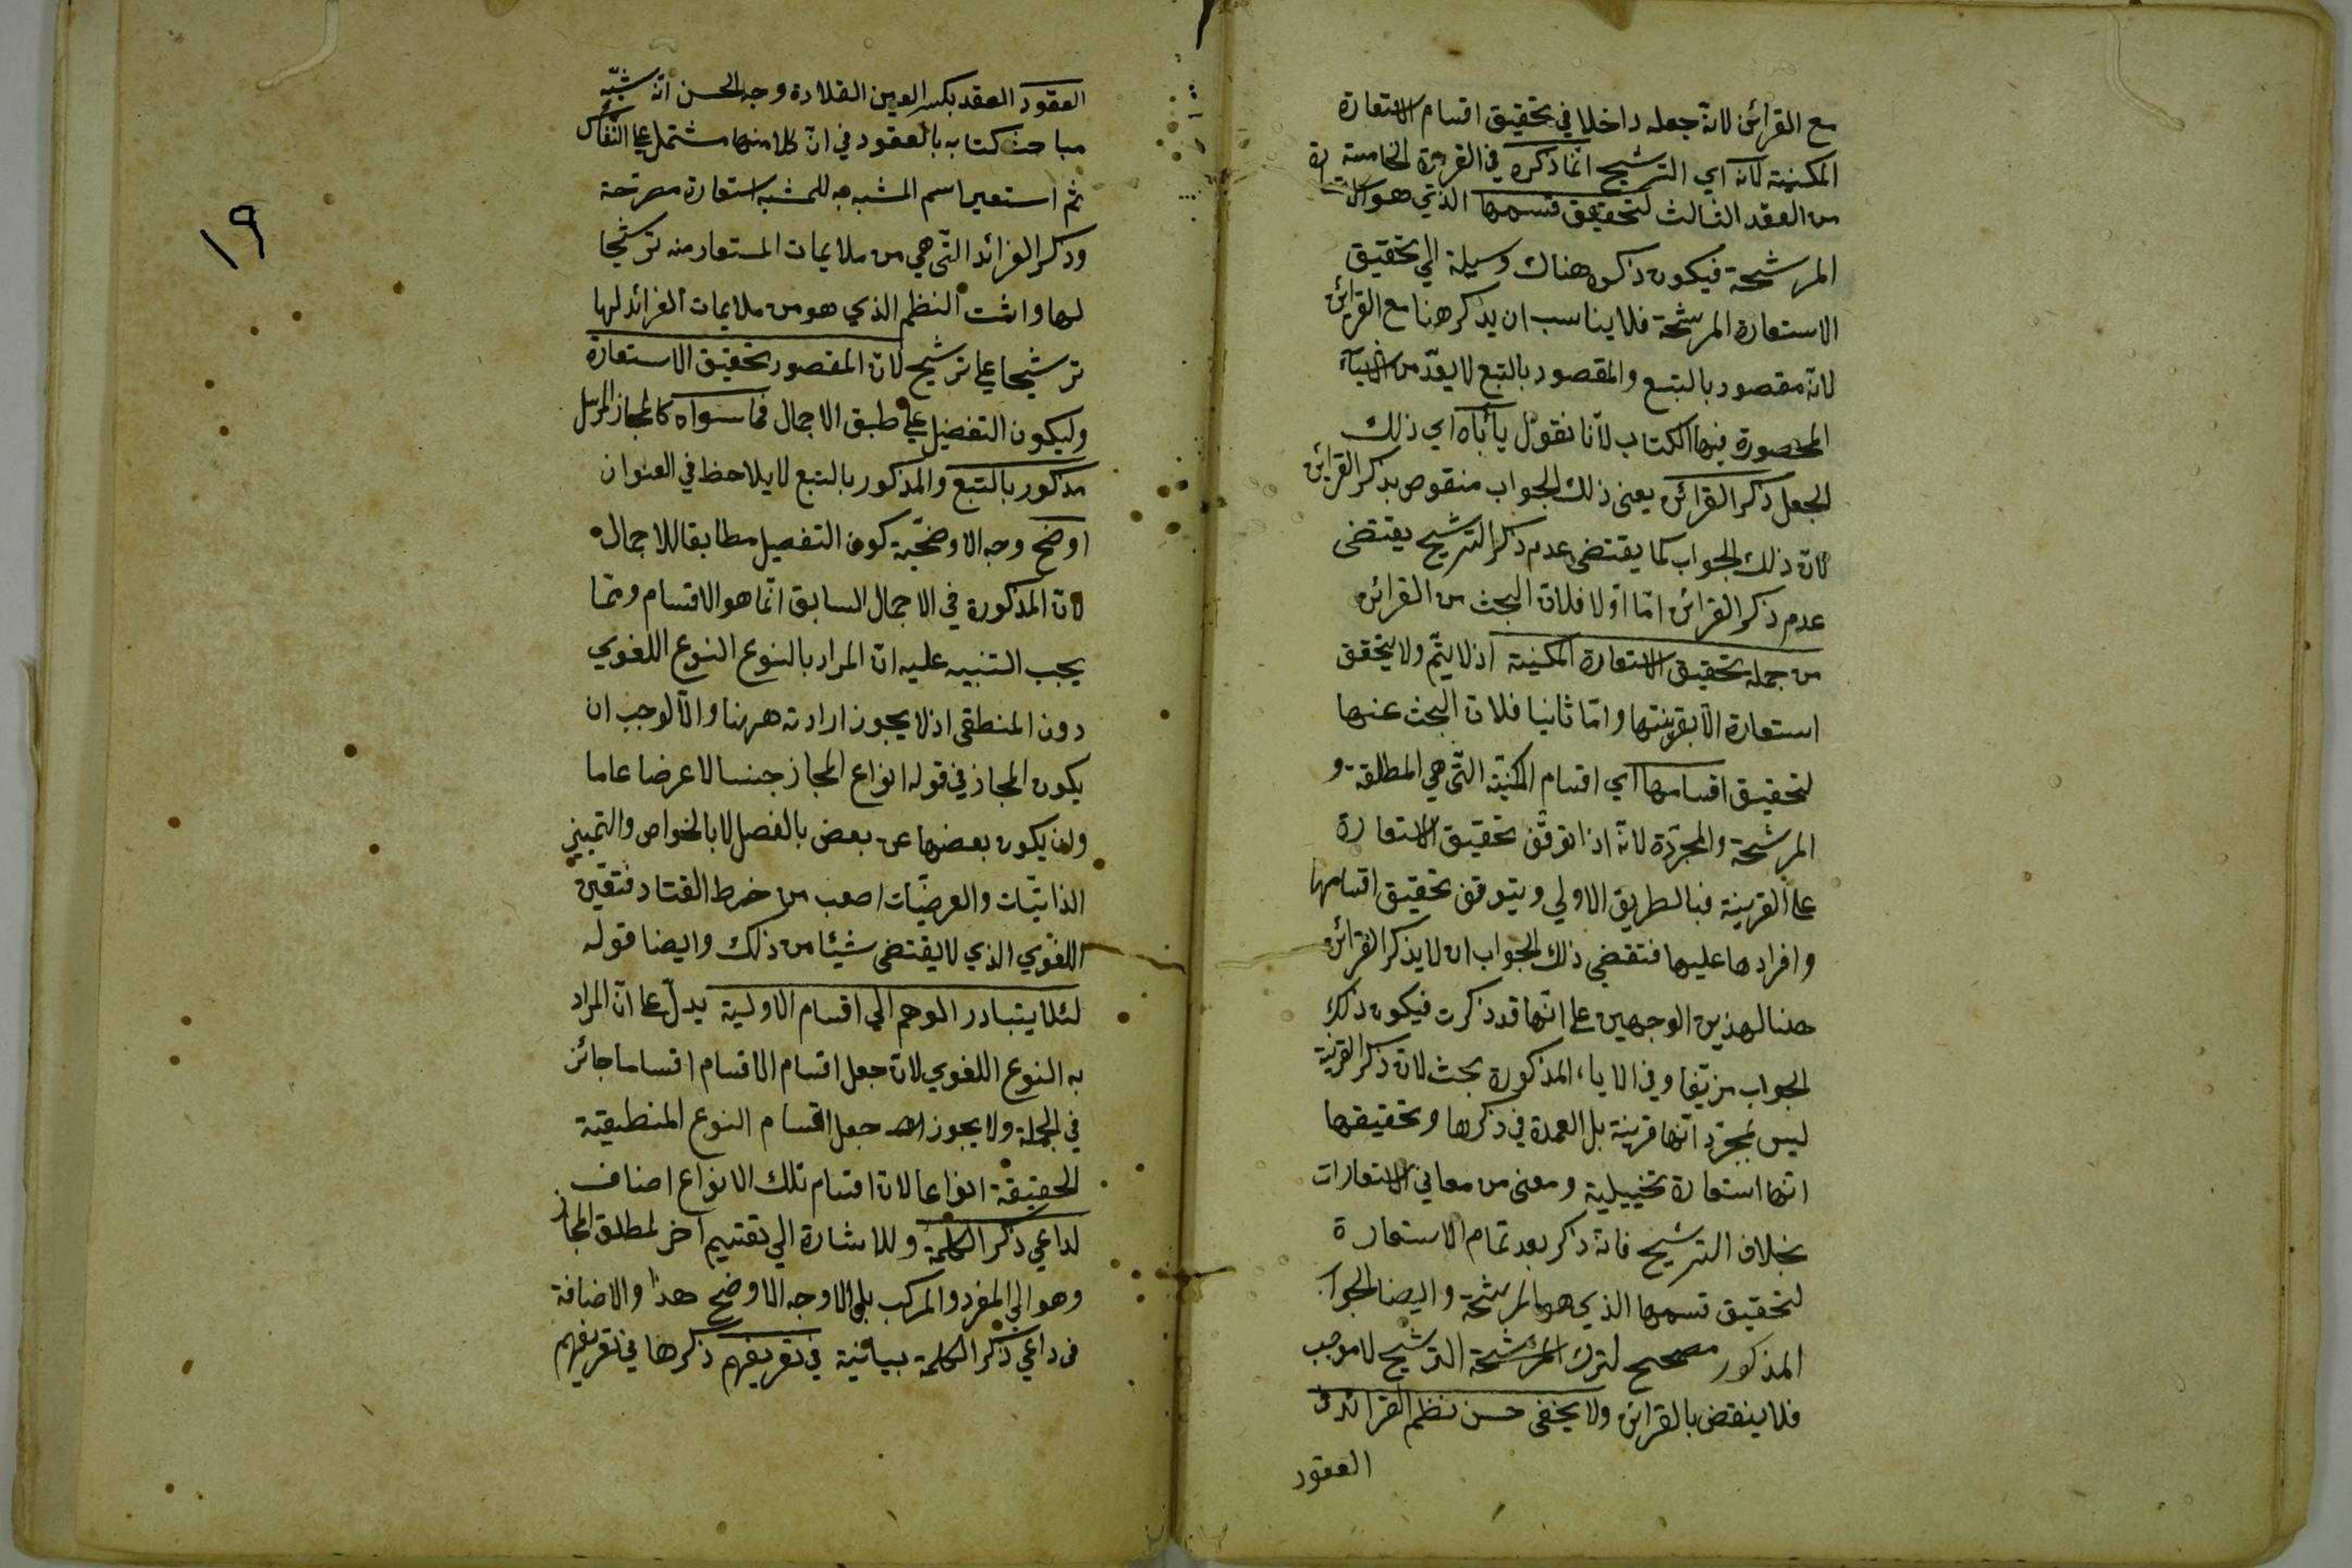 مع القرائن لانه جعله داخلا في تحقيق اقسام الاستعارة
المكنية لانه اي الترشيح انما ذكره في الفريدة الخامسة
من العقد الثالث لتحقيق قسمها الذي هو الاستعارة
المرشحة فيكون ذكره هناك وسيلة الي تحقيق
الاستعارة المرشحة فلا يناسب ان يذكر هنا مع القرائن
لانه مقصود بالتبع والمقصود بالتبع لا يعد من
المحصورة فيها الكتاب لانا نقول يأباه اي ذلك
الجعل ذكر القرائن يعني ذلك الجواب منقوض بذكر القرائن
لان ذلك الجواب كما يقتضي عدم ذكر الترشيح يقتضي
عدم ذكر القرائن اما اولا فلان البحث من القرائن
من جملة تحقيق الاستعارة المكنية اذ لا يتم ولا يتحقق
استعارة الا بقرينتها واما ثانيا فلان البحث عنها
لتحقيق اقسامها اي اقسام المكنية التي هي المطلقة و
المرشحة والمجردة لانه اذا توقف تحقيق الاستعارة
علي القرينة فبالطريق الاولي ويتوقف تحقيق اقسامها
وافرادها عليها فتقتضي ذلك الجواب ان لا يذكر القرائن
هنا لهذين الوجهين علي انها قد ذكرت فيكون ذلك
الجواب مزيفا وفي الاباء المذكورة بحث لان ذكر القرينة
ليس لمجرد انها قرينة بل العمدة في ذكرها وتحقيقها
انها استعارة تخييلية ومعنى من معاني الاستعارات
بخلاف الترشيح فانه ذكر بعد تمام الاستعارة
لتحقيق قسمها الذي هو المرشحة وايضا الجواب
المذكور مصحح لترك المرشحة الترشيح لا موجب
فلا ينقض بالقرائن ولا يخفى حسن نظم الفرائد في
العقود
١٩
العقود العقد بكسر العين القلادة وجه الحسن انه شبّه
مباحث كتابه بالعقود في ان كلا منها مشتمل علي النفائس
ثم استعير اسم المشبه به للمشبه استعارة مصرحة
وذكر الفرائد التي هي من ملايمات المستعار منه ترشيحا
لها واثبت النظم الذي هو من ملايمات الفرائد لها
ترشيحا علي ترشيح لان المقصود تحقيق الاستعارة
وليكون التفصيل علي طبق الاجمال فما سواه كالمجاز المرسل
مذكور بالتبع والمذكور بالتبع لا يلاحظ في العنوان
اوضح وجه الاوضحية كون التفصيل مطابقا للاجمال
لان المذكورة في الاجمال السابق انما هو الاقسام ومما
يجب التنبيه عليه ان المراد بالنوع النوع اللغوي
دون المنطقي اذ لا يجوز ارادته ههنا والا لوجب ان
يكون المجاز في قوله انواع المجاز جنسا لا عرضا عاما
وان يكون بعضها عن بعض بالفصل لا بالخواص والتمييز
الذاتيات والعرضيات اصعب من خرط القتاد فتعين
اللغوي الذي لا يقتضي شيئا من ذلك وايضا قوله
لئلا يتبادر الوهم الي اقسام الاولية يدل علي ان المراد
به النوع اللغوي لان جعل اقسام الاقسام اقساما جائز
في الجملة ولا يجوز جعل اقسام النوع المنطقية
الحقيقة انواعا لان اقسام تلك الانواع اصناف
لداعي ذكر الكلمة وللاشارة الي تقسيم آخر لمطلق المجاز
وهو الي المفرد والمركب بلي الاوجه الاوضح هذا والاضافة
في داعي ذكر الكلمة بيانية في تعريفهم ذكرها في تعريفهم